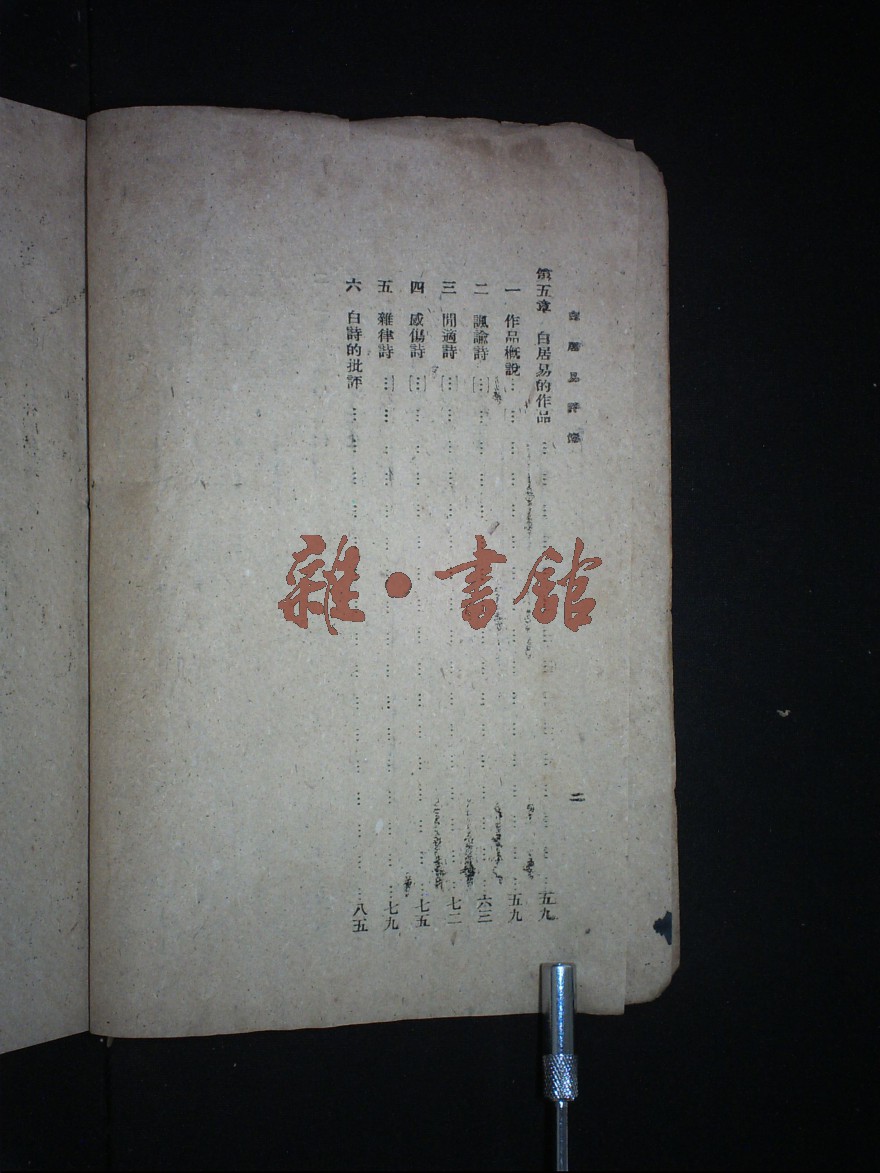 白居易評傳
二
第五章 白居易的作品……五九
一 作品概說……五九
二 諷諭詩……六三
三 閒適詩……七二
四 感傷詩……七五
五 雜律詩……七九
六 白詩的批評……八五
雜·書館